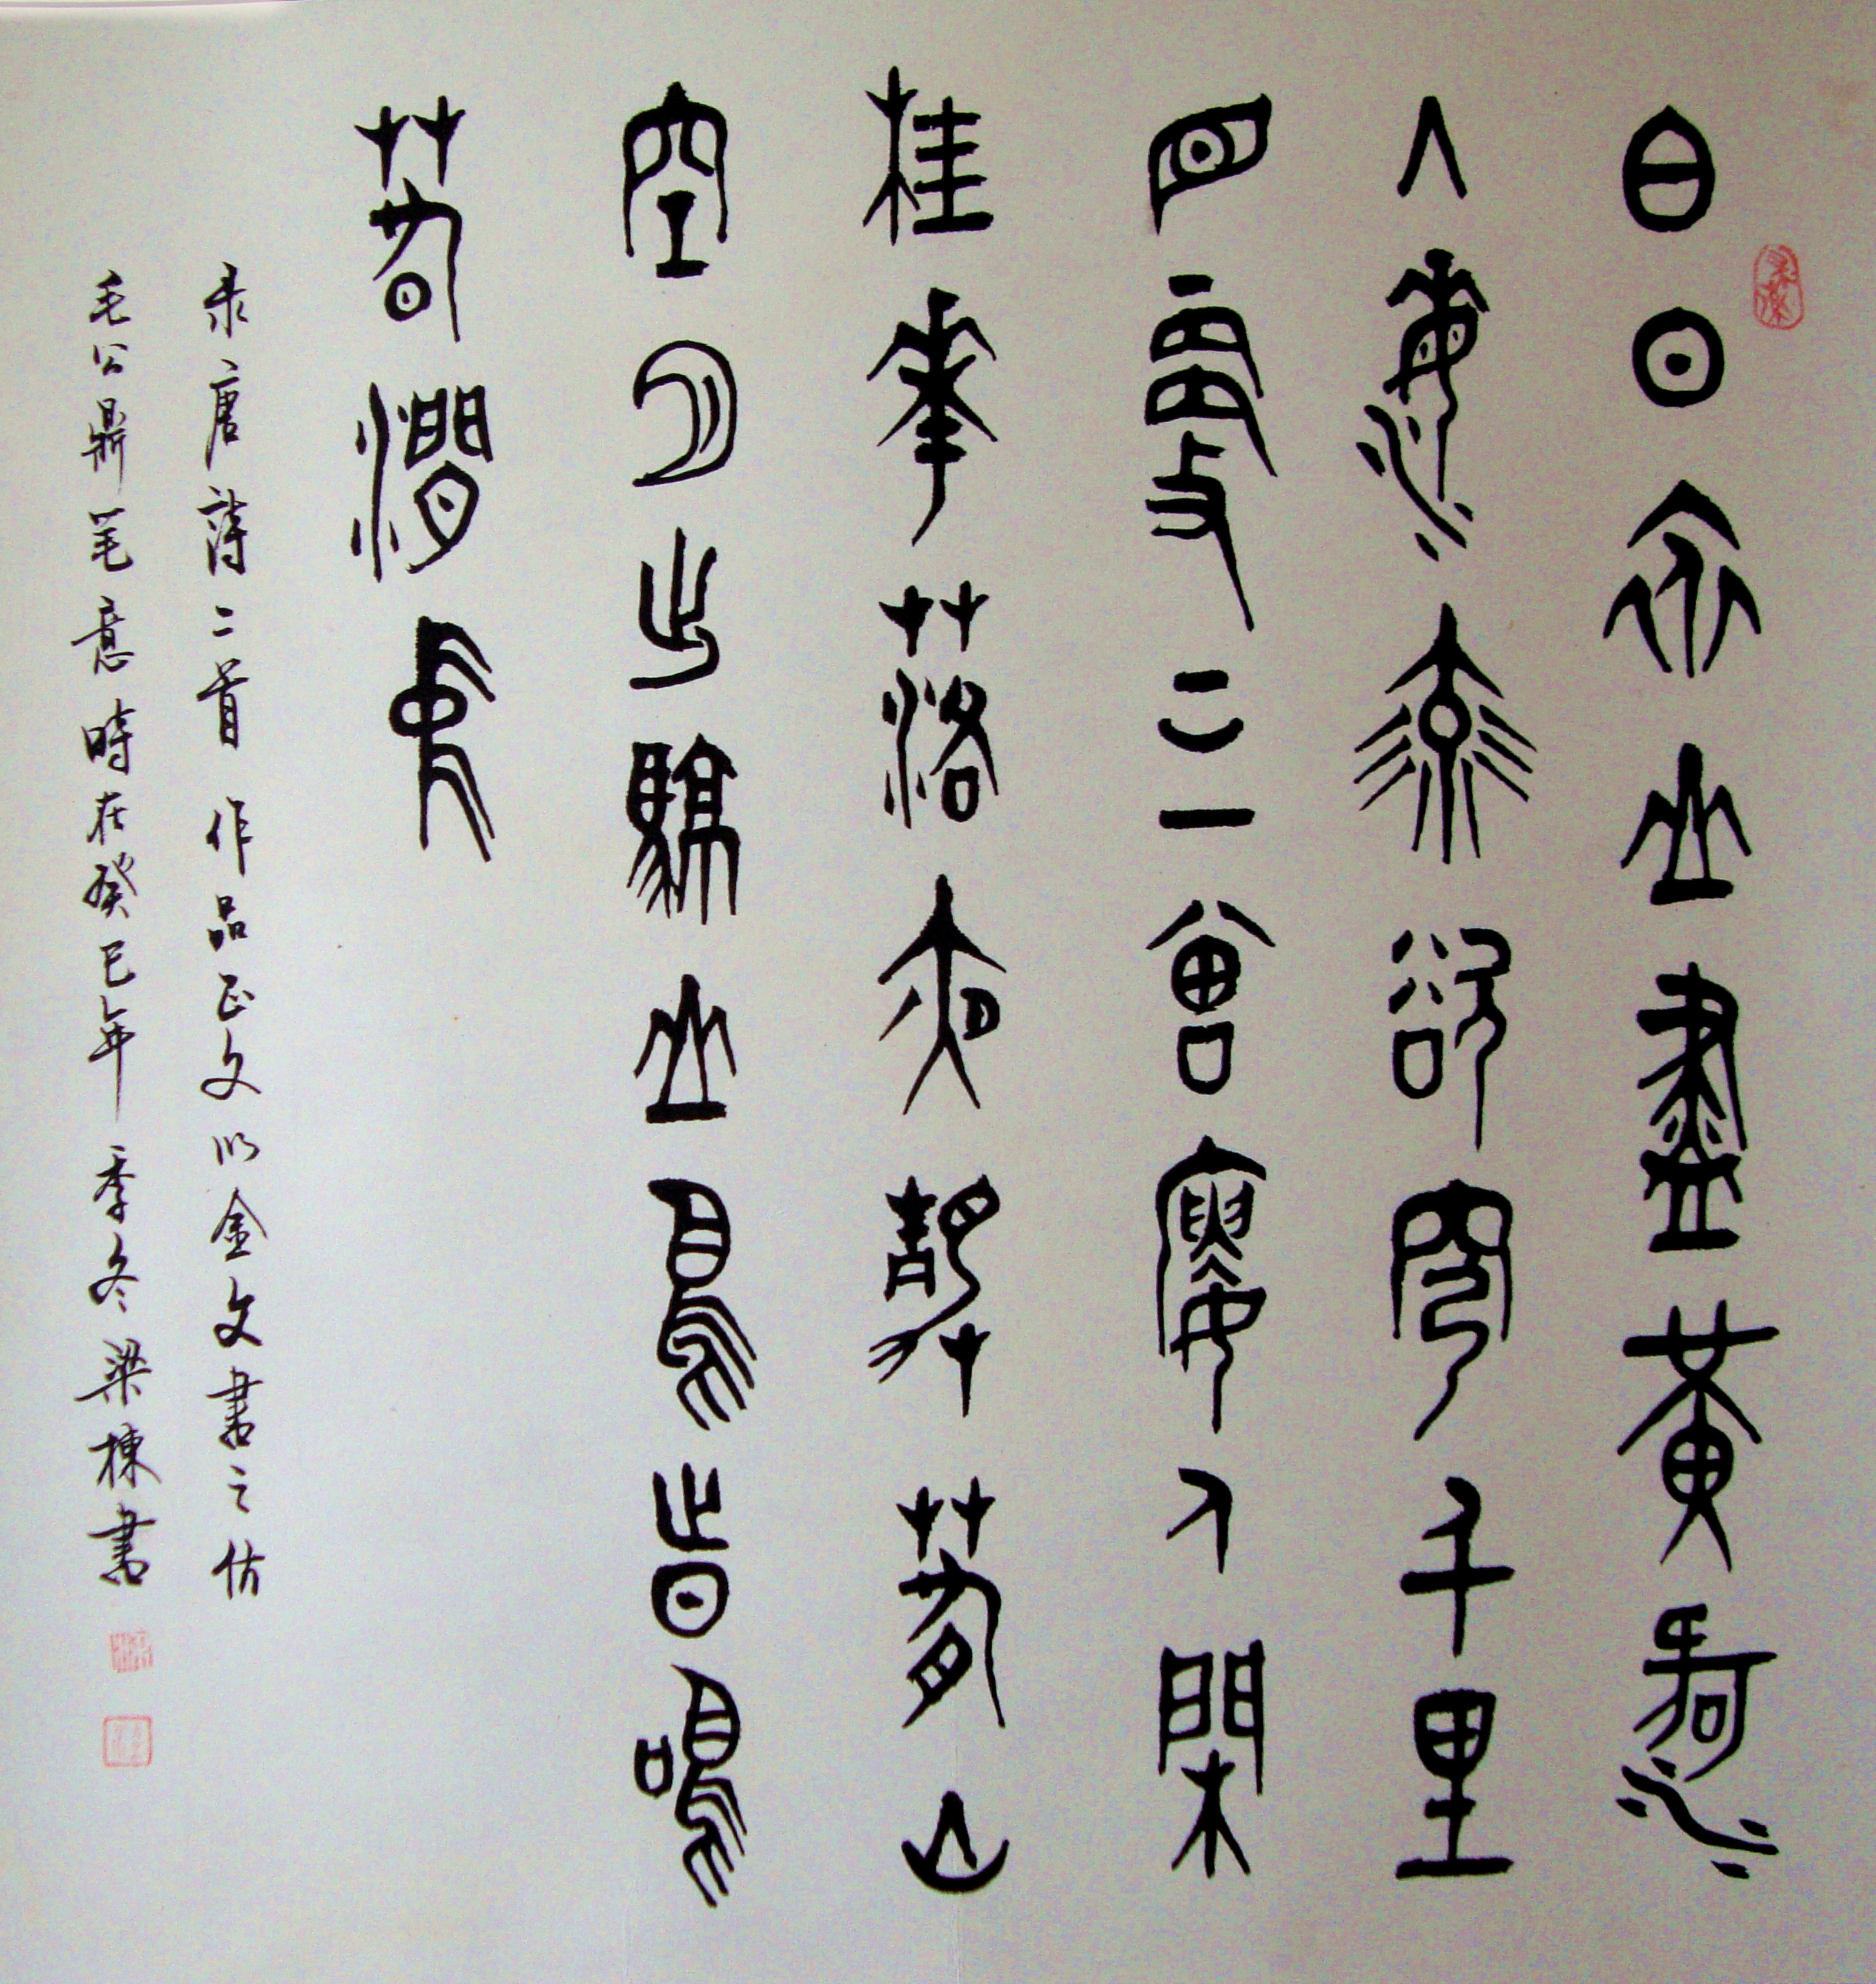 白日依山盡黃河
入海流欲窮千里
目更上一層樓人閑
桂花落夜靜春山
空月出驚山鳥時鳴
春澗中
录唐詩二首作品正文以金文書之仿
毛公鼎笔意時在癸巳年季冬梁棟書